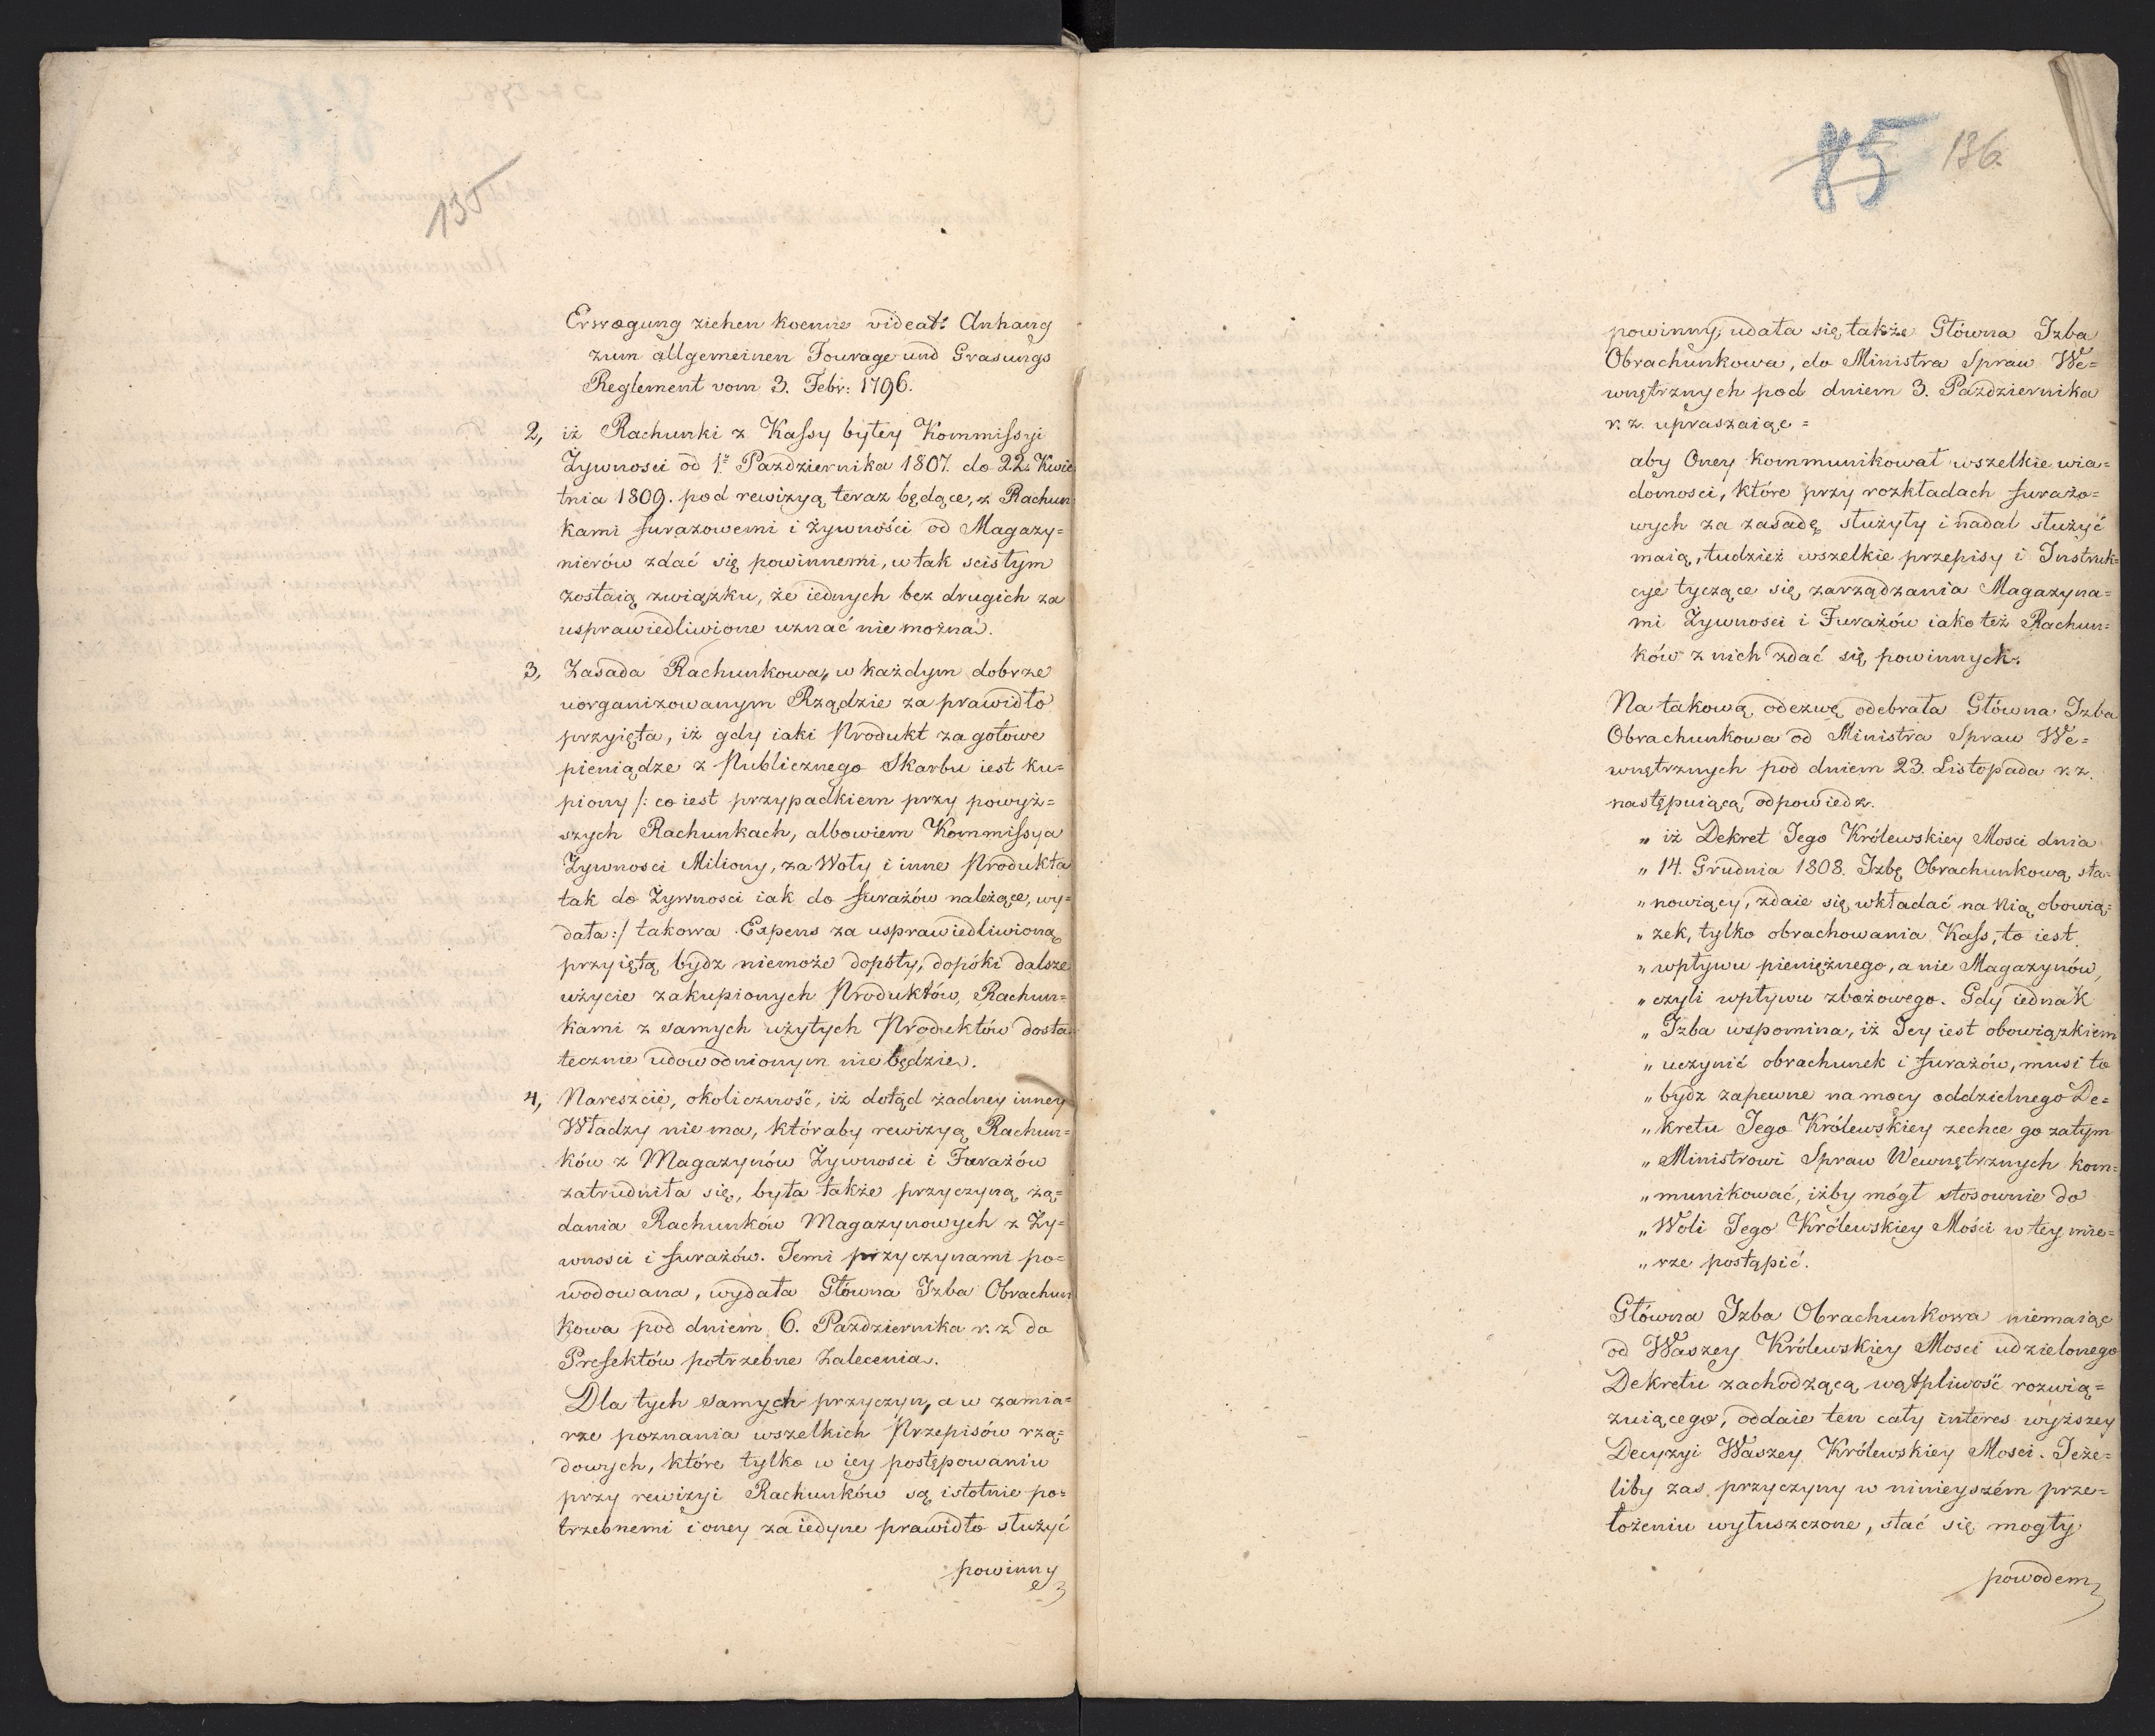 135
Erwægung ziehen koenne videat: Anhang
zum allgemeinen Fourage und Grasungs
Reglement vom 3. Febr: 1796.
2, iż Rachunki z Kassy byłey Kommissyi
Żywnosci od 1o Pazdziernika 1807. do 22. Kwie
tnia 1809. pod rewizyą teraz będące, z Rachun
kami furażowemi i żywności od Magazy=
nierów zdać się powinnemi, w tak scisłym
zostaią związku, że iednych bez drugich za
usprawiedliwione uznać nie można.
3, Zasada Rachunkowa, w każdym dobrze
uorganizowanym Rządzie za prawidło
przyięta, iż gdy iaki Produkt za gotowe
pieniądze z Publicznego Skarbu iest ku=
piony /: co iest przypadkiem przy powyż=
szych Rachunkach, albowiem Kommissya
Żywnosci Miliony, za Woły i inne Produkta
tak do Żywnosci iak do furażów należące, wy=
dała :/ takowa Expens za usprawiedliwioną
przyiętą bydz niemoże dopóty, dopóki dalsze
użycie zakupionych Produktów, Rachun=
kami z samych użytych Produktów dosta=
tecznie udowodnionym nie będzie.
4, Nareszcie, okoliczność, iż dotąd żadney inney
Władzy nie ma, któraby rewizyą Rachun=
ków z Magazynów Żywnosci i Furażów
zatrudniła się, była także przyczyną żą=
dania Rachunków Magazynowych z Ży=
wnosci i furażów. Temi przyczynami po=
wodowana, wydała Główna Izba Obrachun
kowa pod dniem 6. Pazdziernika r. z do
Prefektów potrzebne Zalecenia.
Dla tych samych przyczyn, a w zamia=
rze poznania wszelkich Przepisów rzą=
dowych, które tylko w iey postępowaniu
przy rewizyi Rachunków są istotnie po=
trzebnemi i oney za iedyne prawidło służyć
powinny
85 136.
powinny, udała się także Główna Izba
Obrachunkowa, do Ministra Spraw We=
wnętrznych pod dniem 3. Pazdziernika
r. z. upraszaiąc =
aby Oney kommunikował wszelkie wia=
domosci, które przy rozkładach furażo=
wych za zasadę służyły i nadal służyć
maią, tudzież wszelkie przepisy i Instruk=
cye tyczące się zarządzania Magazyna=
mi Żywnosci i Furażów iako też Rachun=
ków z nich zdać się powinnych.
Na takową odezwę odebrała Główna Izba
Obrachunkowa od Ministra Spraw We=
wnętrznych pod dniem 23. Listopada r. z.
następuiącą odpowiedz.
„ iż Dekret Jego Królewskiey Mosci dnia
„ 14. Grudnia 1808. Izbę Obrachunkową sta=
„ nowiący, zdaie się wkładać na Nią obowią=
„ zek, tylko obrachowania Kass, to iest
„ wpływu pieniężnego, a nie Magazynów,
„ czyli wpływu zbożowego. Gdy iednak
„ Izba wspomina, iż Jey iest obowiązkiem
„ uczynić obrachunek i furażów, musi to
„ bydz zapewne na mocy oddzielnego De=
„ kretu Jego Królewskiey zechce go zatym
„ Ministrowi Spraw Wewnętrznych kom=
„ munikować, iżby mógł stosownie do
„ Woli Jego Królewskiey Mości w tey mie=
„ rze postąpić.
Główna Izba Obrachunkowa niemaiąc
od Waszey Królewskiey Mosci udzielonego
Dekretu zachodzącą wątpliwość rozwią=
zuiącego, oddaie ten cały interes wyższey
Decyzyi Waszey Królewskiey Mosci. Jeże=
liby zas przyczyny w ninieyszém prze=
łożeniu wyłuszczone, stać się mogły
powodem